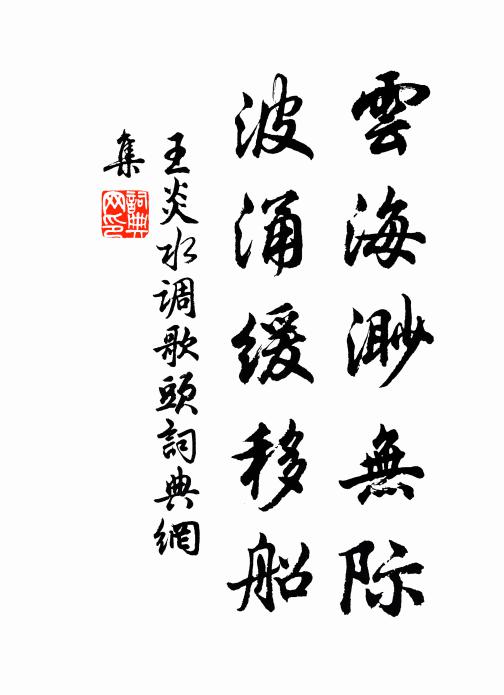 雲海渺無际
波涌缓移船
王炎水调歌頭詞典網
集
詞典
网印